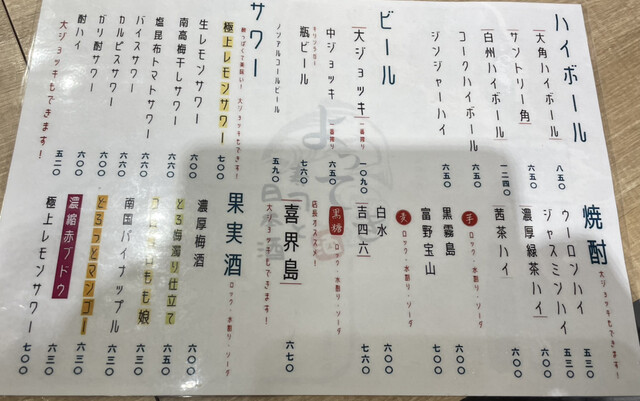 ハイボール
大角ハイボール 八五〇
サントリー角 六五〇
白州ハイボール 一二四〇
コークハイボール 六五〇
ジンジャーハイ 六五〇
ビール
大ジョッキ 一番搾り 一〇九〇
中ジョッキ 一番搾り 六五〇
瓶ビール キリンラガー 七六〇
ノンアルコールビール 五九〇
サワー
酔っぱくて美味い! 大ジョッキもできます!
極上レモンサワー 七〇〇
生レモンサワー 六〇〇
南高梅干しサワー 六六〇
塩昆布トマトサワー 六六〇
バイスサワー 六〇〇
カルピスサワー 六〇〇
ガリ酎サワー 六〇〇
酎ハイ 五二〇
大ジョッキもできます!
焼酎
大ジョッキもできます!
ウーロンハイ 五三〇
ジャスミンハイ 五三〇
濃厚緑茶ハイ 六〇〇
茜茶ハイ 六〇〇
芋 ロック・水割り・ソーダ
黒霧島 六〇〇
富野宝山 七〇〇
麦 ロック・水割り・ソーダ
白水 六〇〇
吉四六 七六〇
黒糖 ロック・水割り・ソーダ
店長オススメ!
喜界島 六七〇
大ジョッキもできます!
果実酒
ロック・水割り・ソーダ
濃厚梅酒 六〇〇
とろ梅濁り仕立て 六五〇
もも娘 六三〇
南国パイナップル 六三〇
とろっとマンゴー 六三〇
濃縮赤ブドウ 六三〇
極上レモンサワー 七〇〇